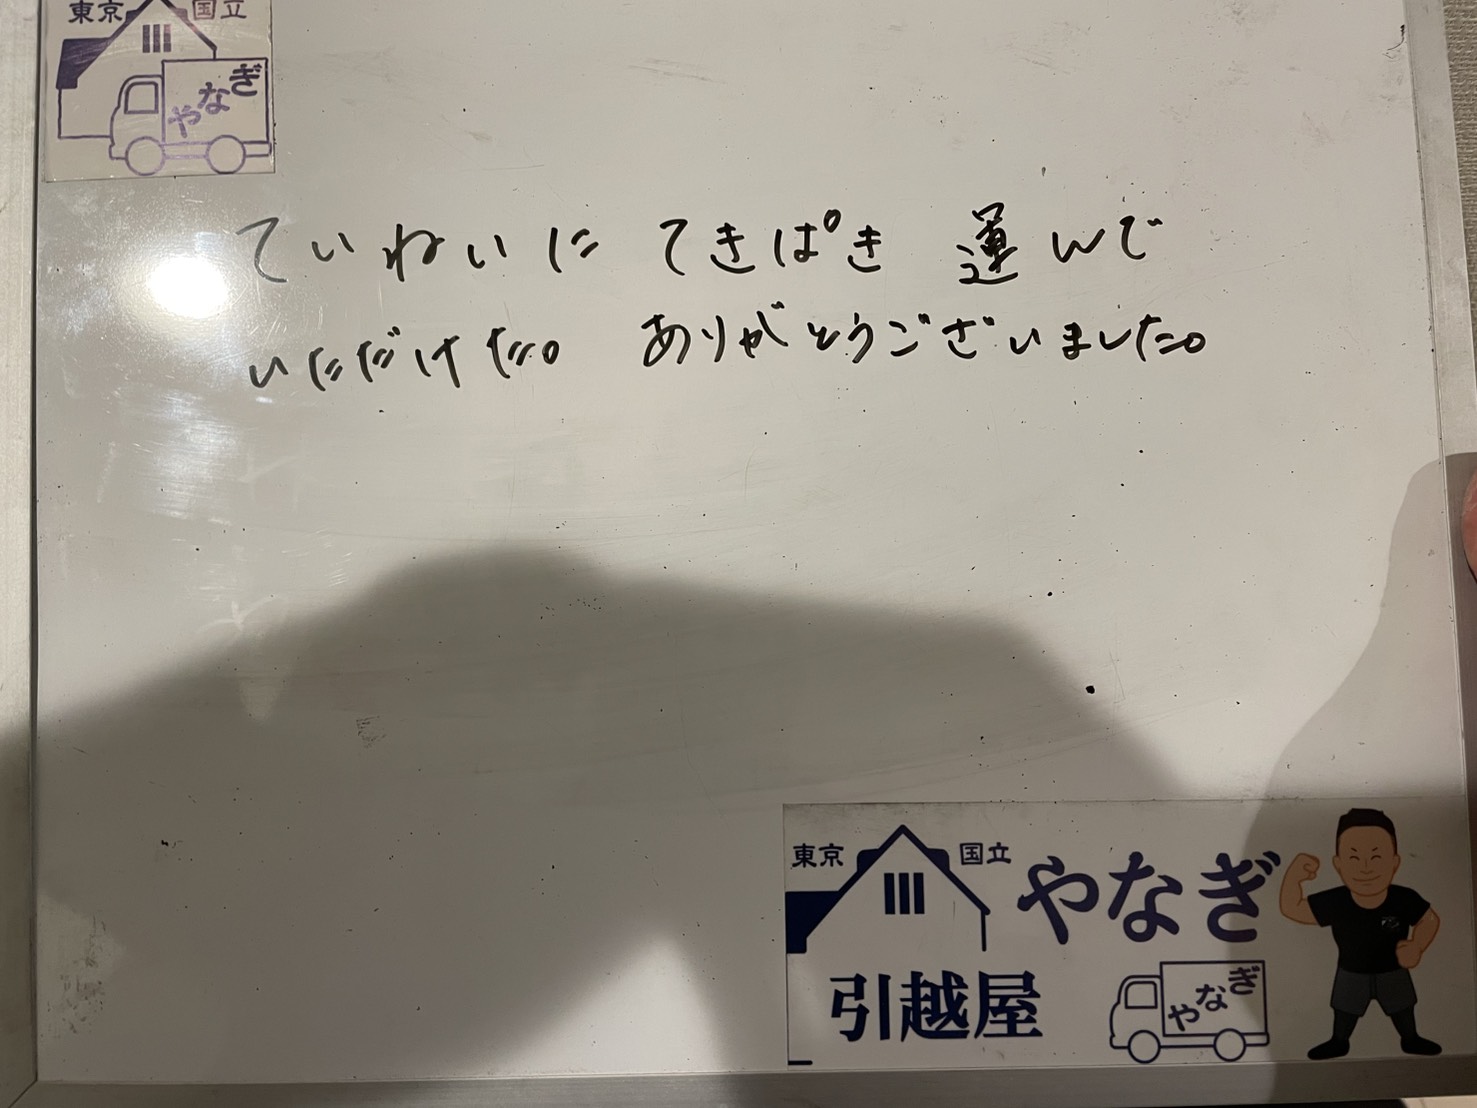 東京 国立
やなぎ
ていねいに てきぱき 運んで
いただけた。 ありがとうございました。
東京 国立 やなぎ
引越屋 やなぎ